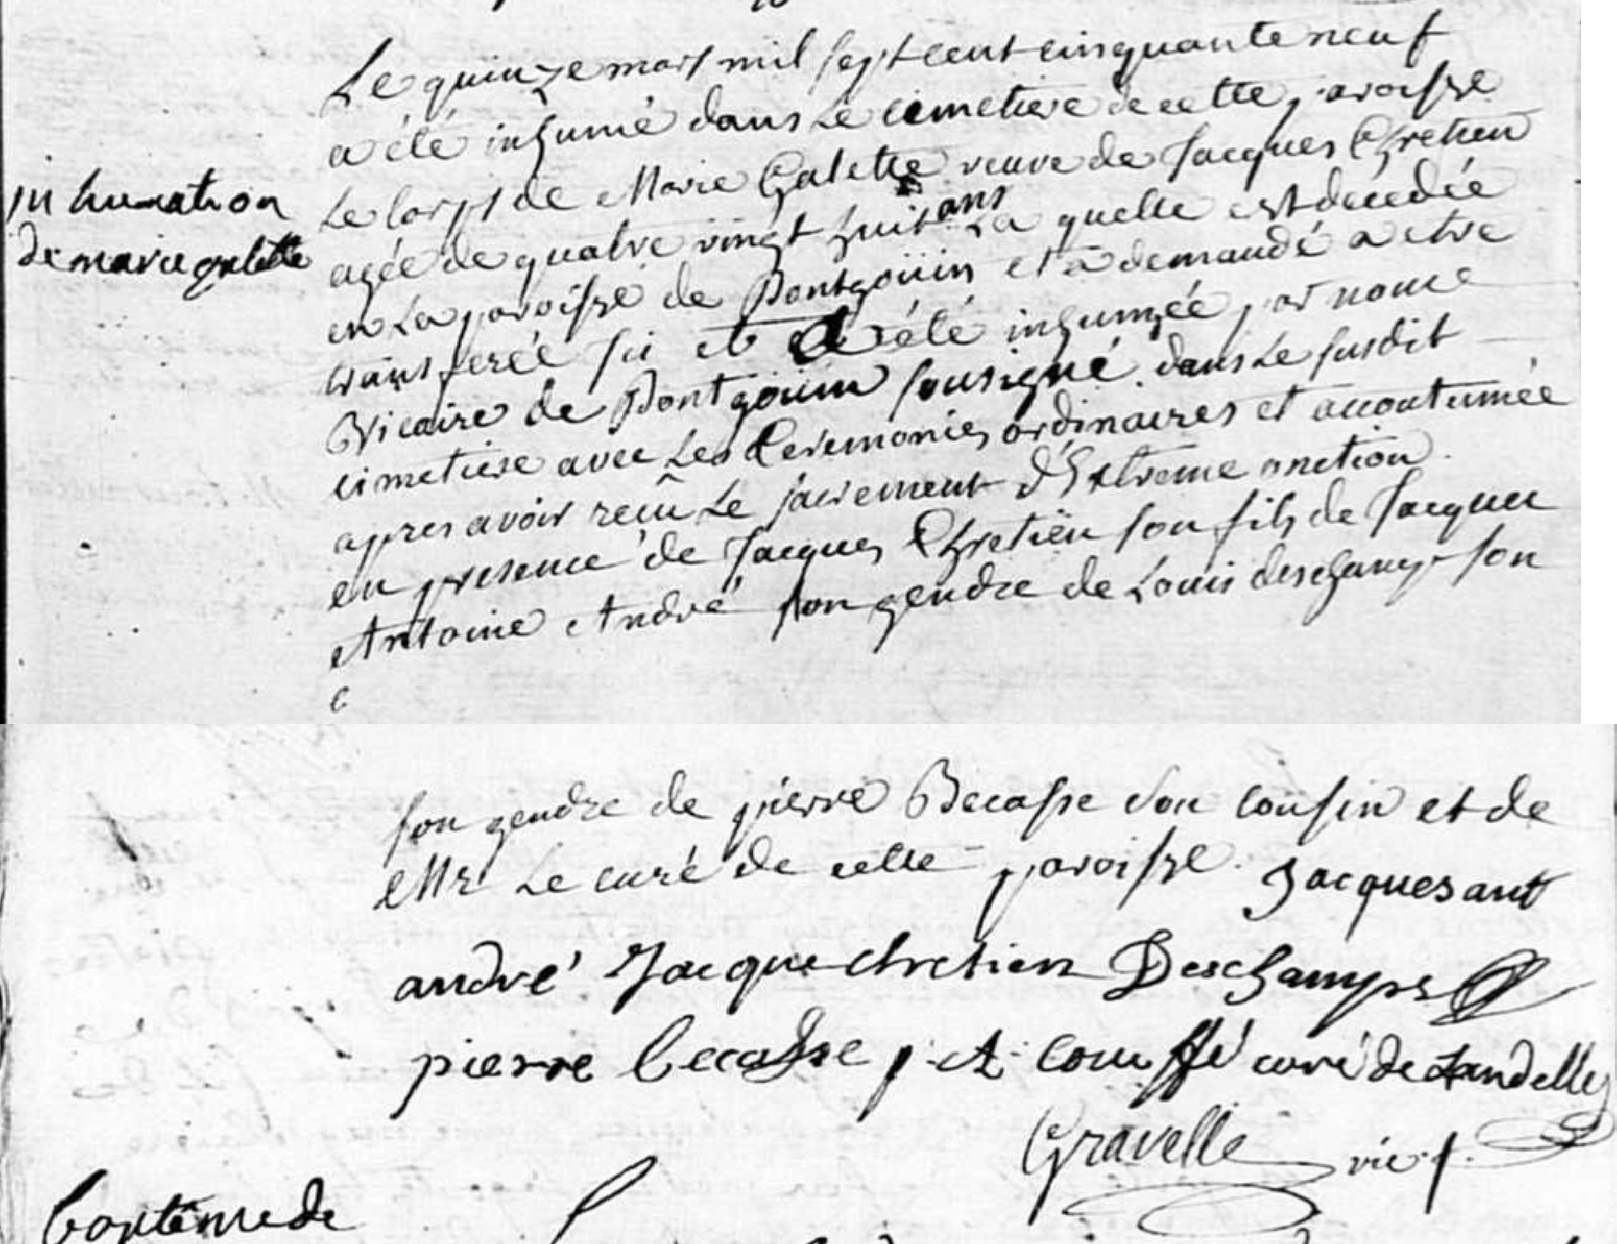 Le quinze mars mil sept cent cinquante neuf
a été inhumé dans Le cimetiere de cette paroisse
Le Corps de Marie Galette veuve de Jacques Chretien
agée de quatre vingt huit ans La quelle est décedée
en La paroisse de Pontgoüin et a demandé a etre
transferée ici et a été inhumée par nous
Vicaire de Pontgoüin sousigné dans Le susdit
cimetiere avec Les Ceremonies ordinaires et accoutumée
apres avoir reçû Le sacrement d'Extreme onction
en presence de Jacques Chretien son fils de Jacques
Antoine André son gendre de Louis deschamps son
inhumation
de marie galette
son gendre de pierre Becasse son cousin et de
Mr Le curé de cette paroisse. Jacques ant
andré Jacque chretien Deschamps
pierre becasse curé de Landelles
Gravelle vic.
baptême de